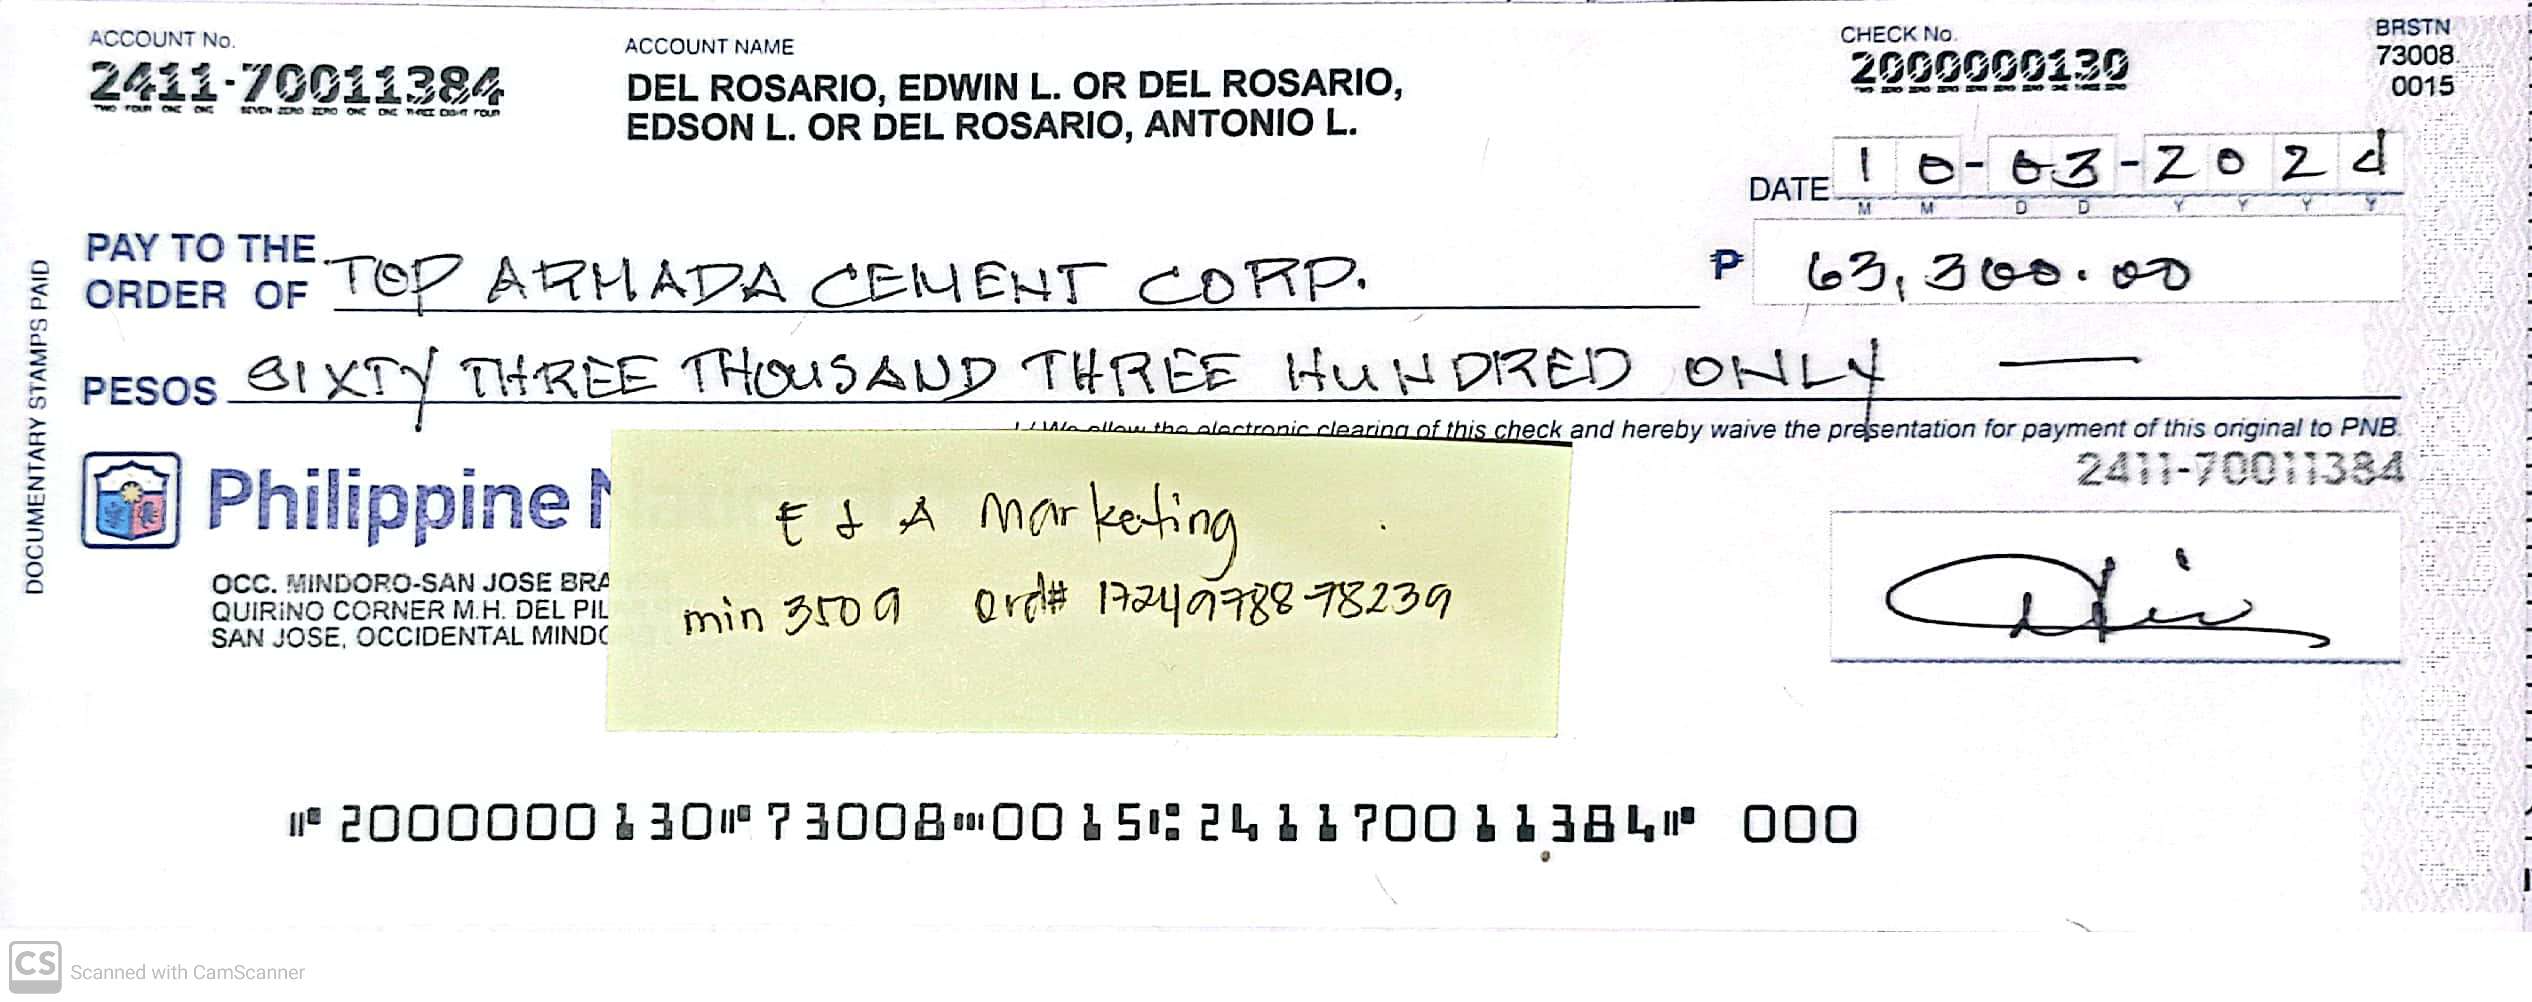 ACCOUNT No.
2411-70011384
TWO FOUR ONE ONE SEVEN ZERO ZERO ONE ONE THREE EIGHT FOUR
ACCOUNT NAME
DEL ROSARIO, EDWIN L. OR DEL ROSARIO,
EDSON L. OR DEL ROSARIO, ANTONIO L.
CHECK No.
2000000130
TWO ZERO ZERO ZERO ZERO ZERO ZERO ONE THREE ZERO
BRSTN
73008
0015
DATE 10-03-2024
M M D D Y Y Y Y
PAY TO THE ORDER OF TOP ARMADA CEMENT CORP.
₱ 63,300.00
PESOS SIXTY THREE THOUSAND THREE HUNDRED ONLY —
I / We allow the electronic clearing of this check and hereby waive the presentation for payment of this original to PNB.
DOCUMENTARY STAMPS PAID
2411-70011384
Philippine N
OCC. MINDORO-SAN JOSE BRA
QUIRINO CORNER M.H. DEL PIL
SAN JOSE, OCCIDENTAL MINDO
E & A Marketing
min 3509 Ord# 1724978878239
2000000130 73008 0015 241170011384 000
CS Scanned with CamScanner